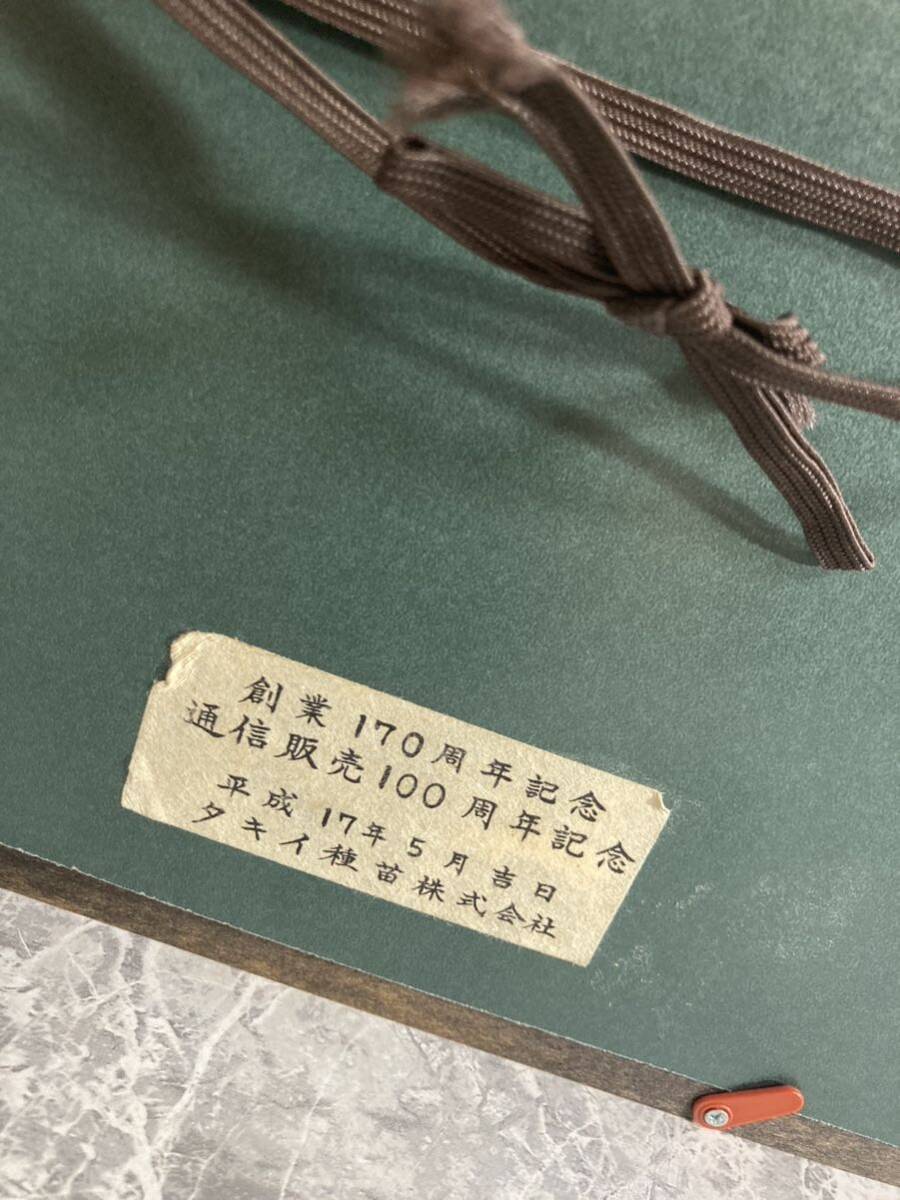 創業170周年記念
通信販売100周年記念
平成17年5月吉日
タキイ種苗株式会社